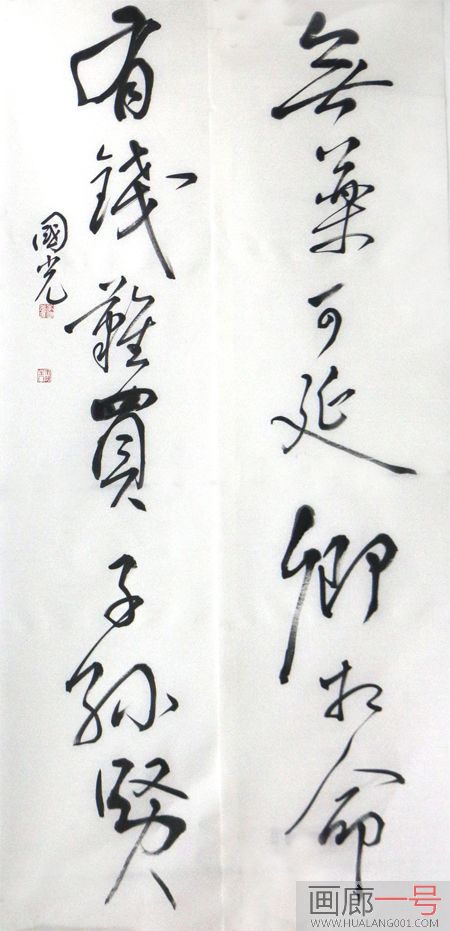 無藥可延卿相命
有錢難買子孫賢
國光
画廊一号
WWW.HUALANG001.COM